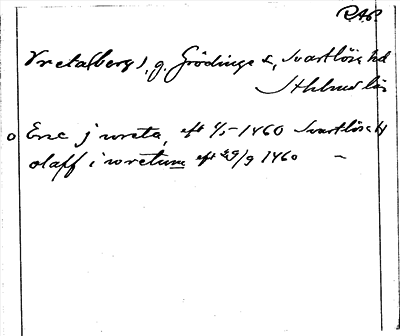 RAP
Vreta(berg), g. Grödinge s, Svartlösa hd
Sthlms län
o Eric j wreta, eft 4/5 1460 Svartlösa h
olaff i wretum eft 29/9 1460 —